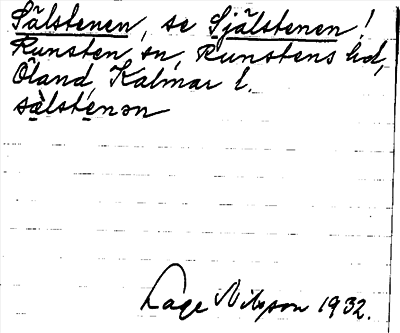 Sälstenen, se Själstenen!
Runsten sn, Runstens hd,
Öland, Kalmar l.
sälsténən
Lage Nilsson 1932.